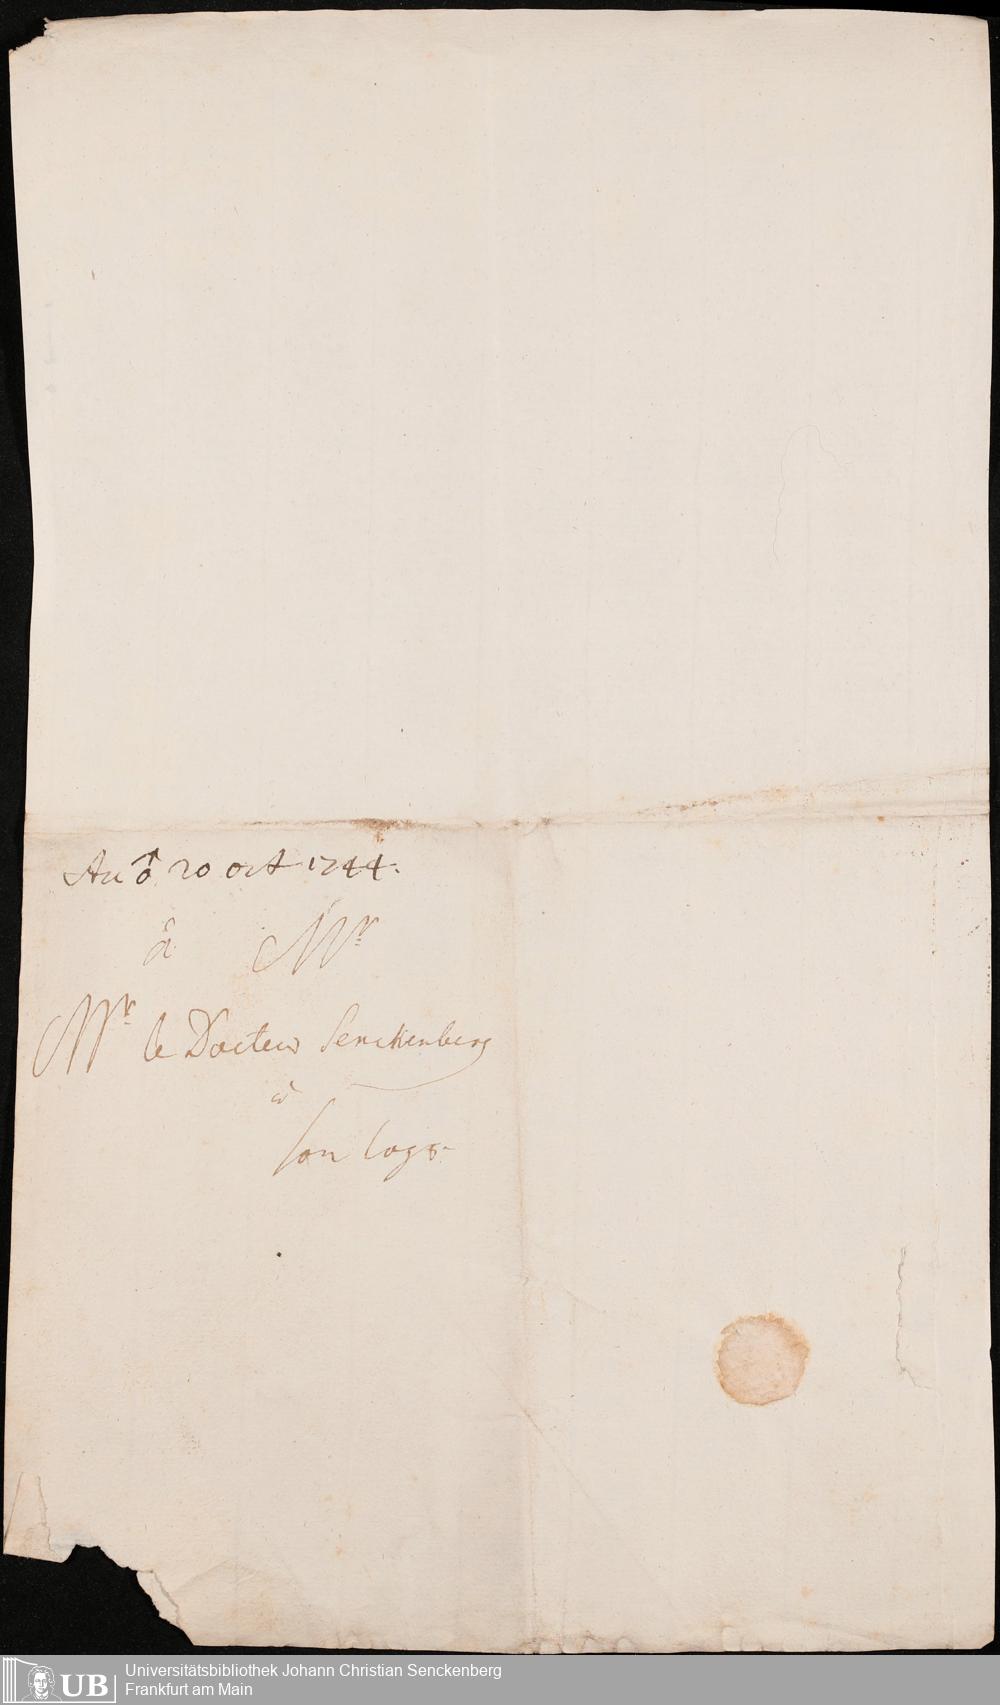 Au ♂ 20 oct 1744.
à Mr
Mr le Docteur Senckenberg
à
son logs.
UB
Universitätsbibliothek Johann Christian Senckenberg
Frankfurt am Main